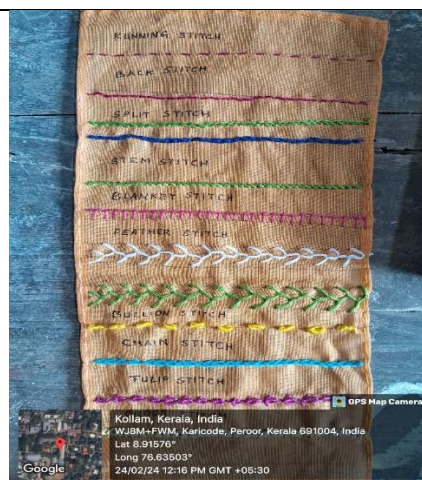 RUNNING STITCH
BACK STITCH
SPLIT STITCH
STEM STITCH
BLANKET STITCH
FEATHER STITCH
BULLION STITCH
CHAIN STITCH
TULIP STITCH
GPS Map Camera
Kollam, Kerala, India
WJ8M+FWM, Karicode, Peroor, Kerala 691004, India
Lat 8.91576°
Long 76.63503°
24/02/24 12:16 PM GMT +05:30
Google